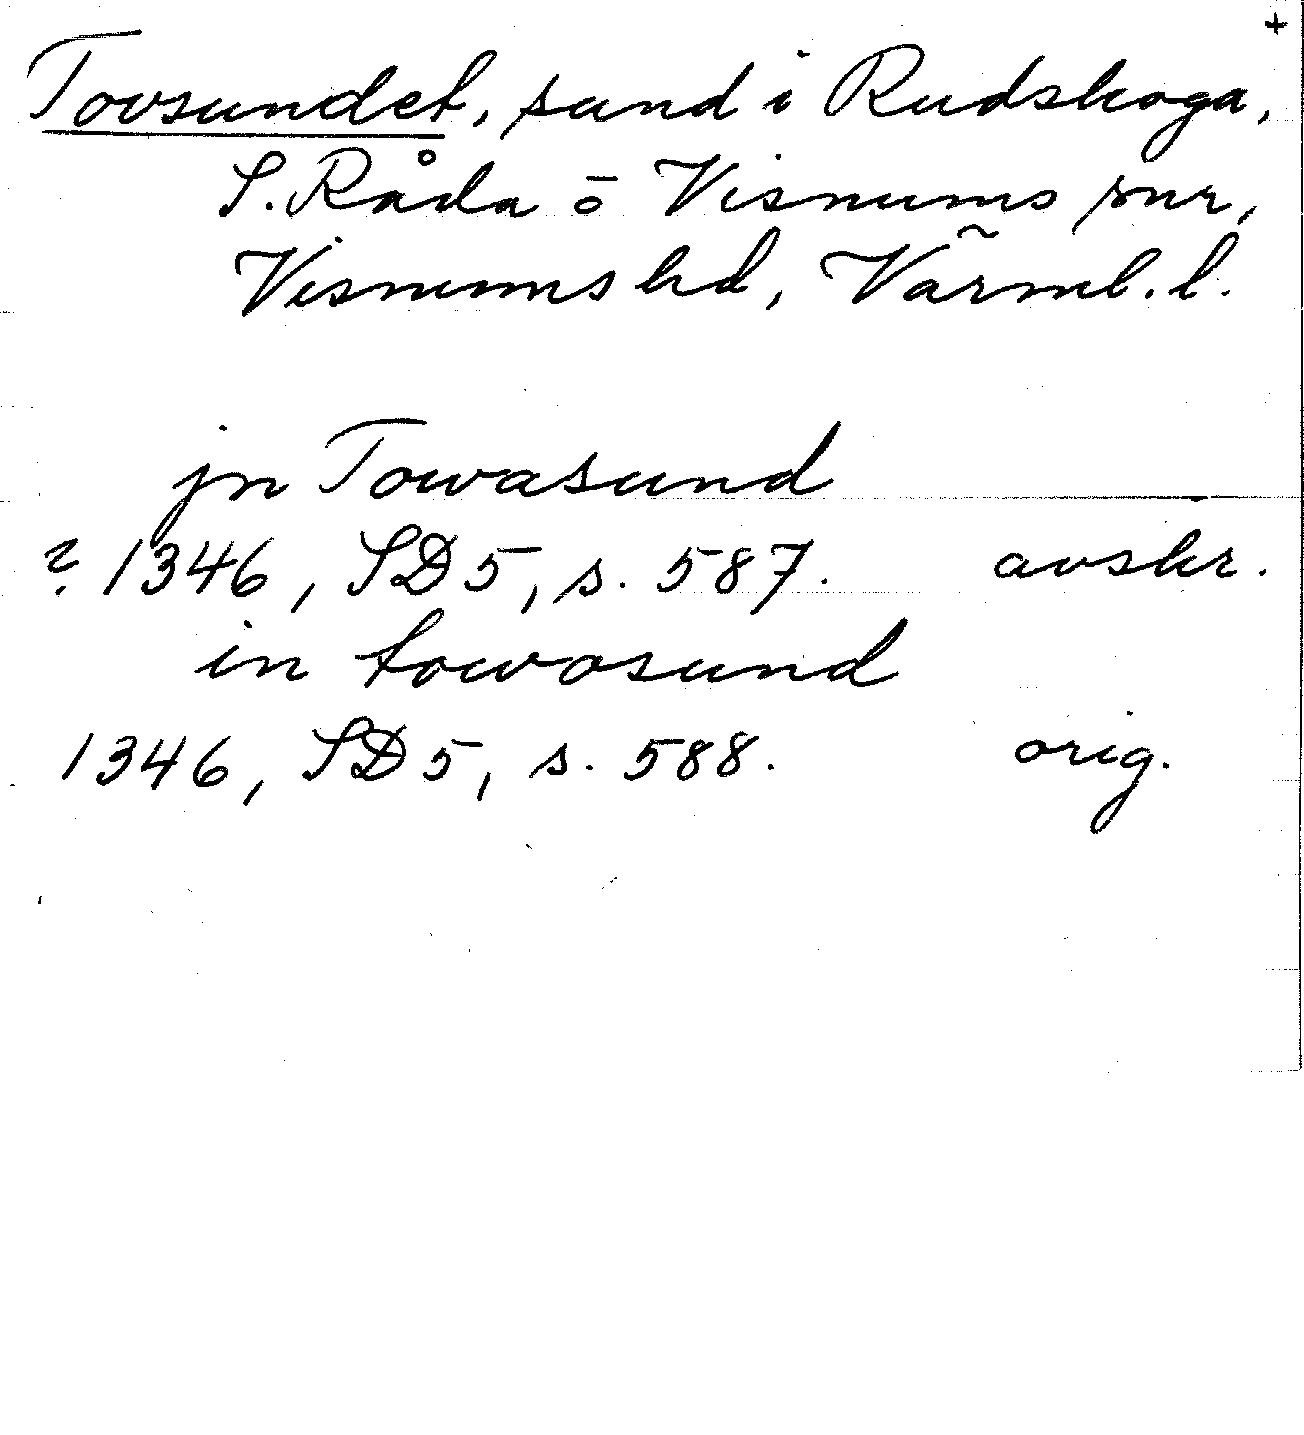 +
Tovsundet, sund i Rudskoga,
S. Råda o Visnums snr,
Visnums hd, Värml. l.
jn Towasund
? 1346, SD 5, s. 587. avskr.
in towosund
1346, SD 5, s. 588. orig.